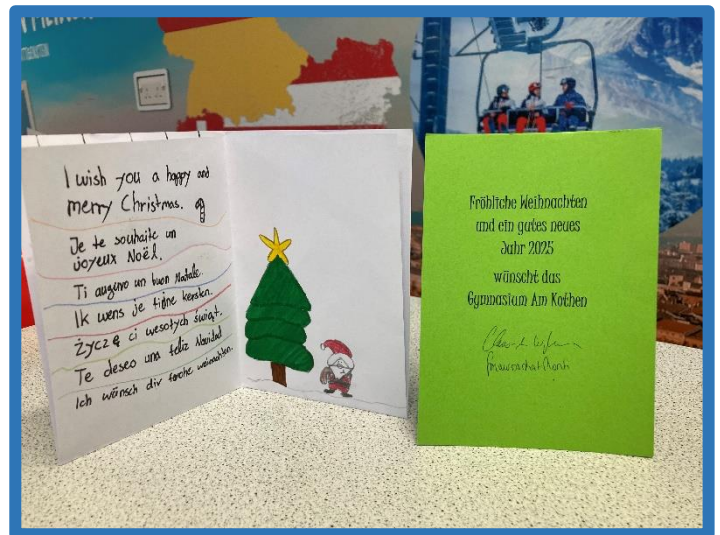 I wish you a happy and
merry Christmas.
Je te souhaite un
joyeux Noël.
Ti auguro un buon Natale.
Ik wens je fidne kersten.
Życzę ci wesołych świąt.
Te deseo una feliz Navidad
Ich wünsch dir forche weienachten.
Fröhliche Weihnachten
und ein gutes neues
Jahr 2025
wünscht das
Gymnasium Am Kothen